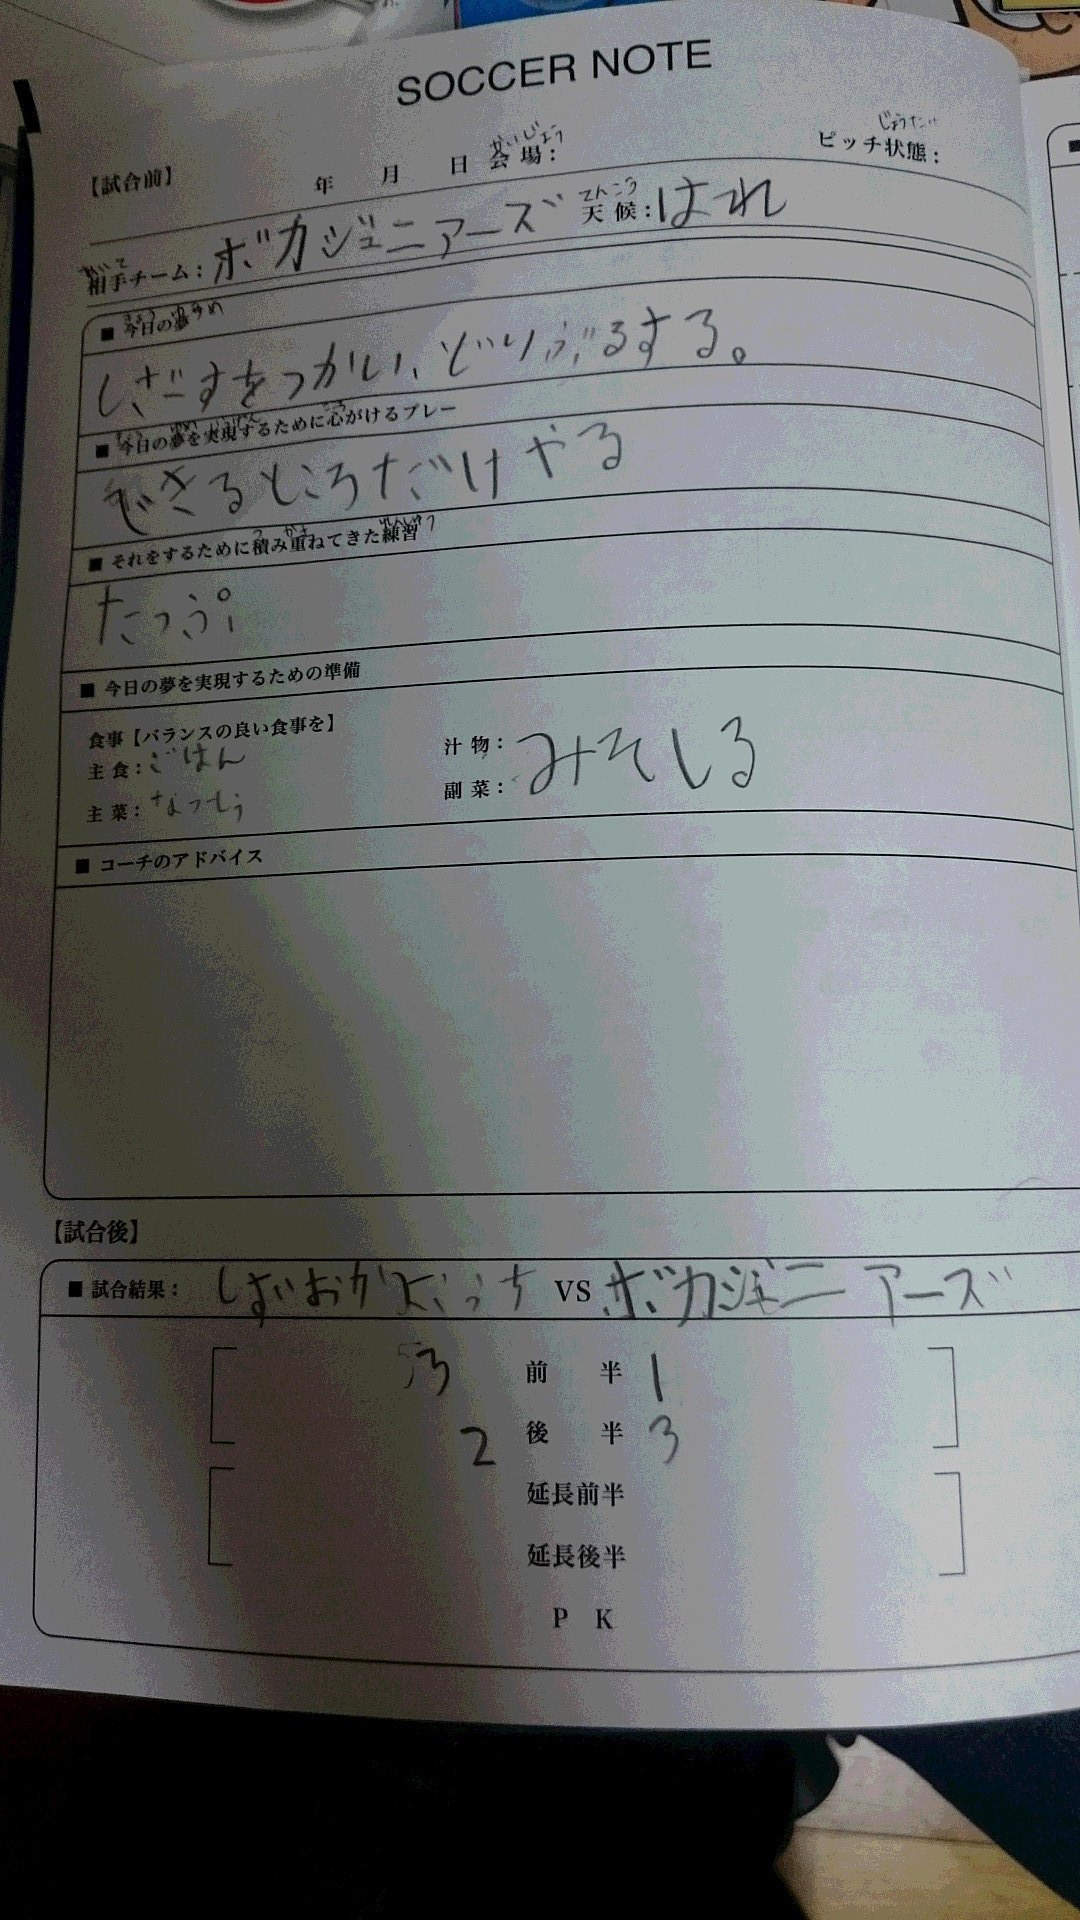 SOCCER NOTE
【試合前】 年 月 日 会場: ピッチ状態:
かいじょう じょうたい
相手チーム: ボカジュニアーズ 天候: はれ
あいて てんこう
■ 今日の夢
きょう ゆめ
しざーすをつかい、どりぶるする。
■ 今日の夢を実現するために心がけるプレー
できるところだけやる
■ それをするために積み重ねてきた練習
つ かさ れんしゅう
たっぷり
■ 今日の夢を実現するための準備
食事【バランスの良い食事を】
主食: ごはん 汁物: みそしる
主菜: なっとう 副菜:
■ コーチのアドバイス
【試合後】
■ 試合結果: VS ボカジュニアーズ
3 前半 1
2 後半 3
延長前半
延長後半
PK